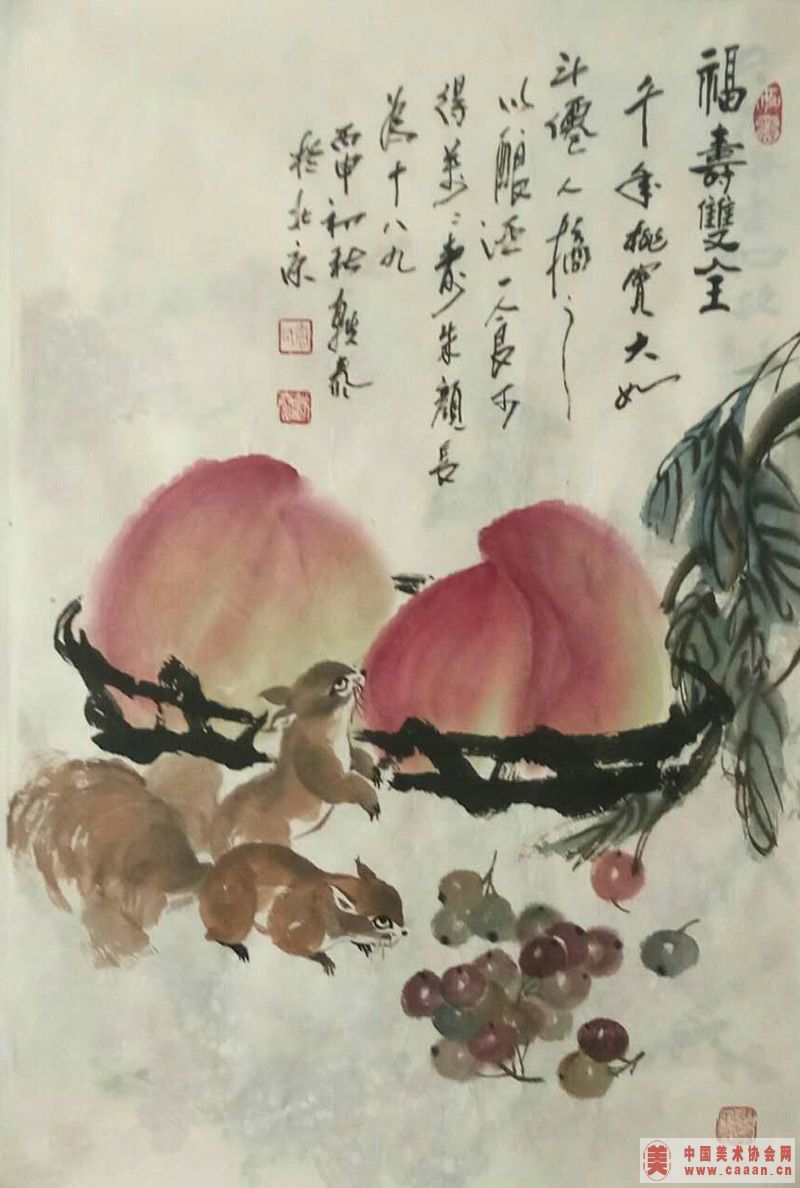 福壽雙全
千年桃實大如
斗僊人摘之
以釀酒一食可
得萬萬壽朱顏長
為十八九
丙申初秋
於北京
中国美术协会网
www.caaan.cn